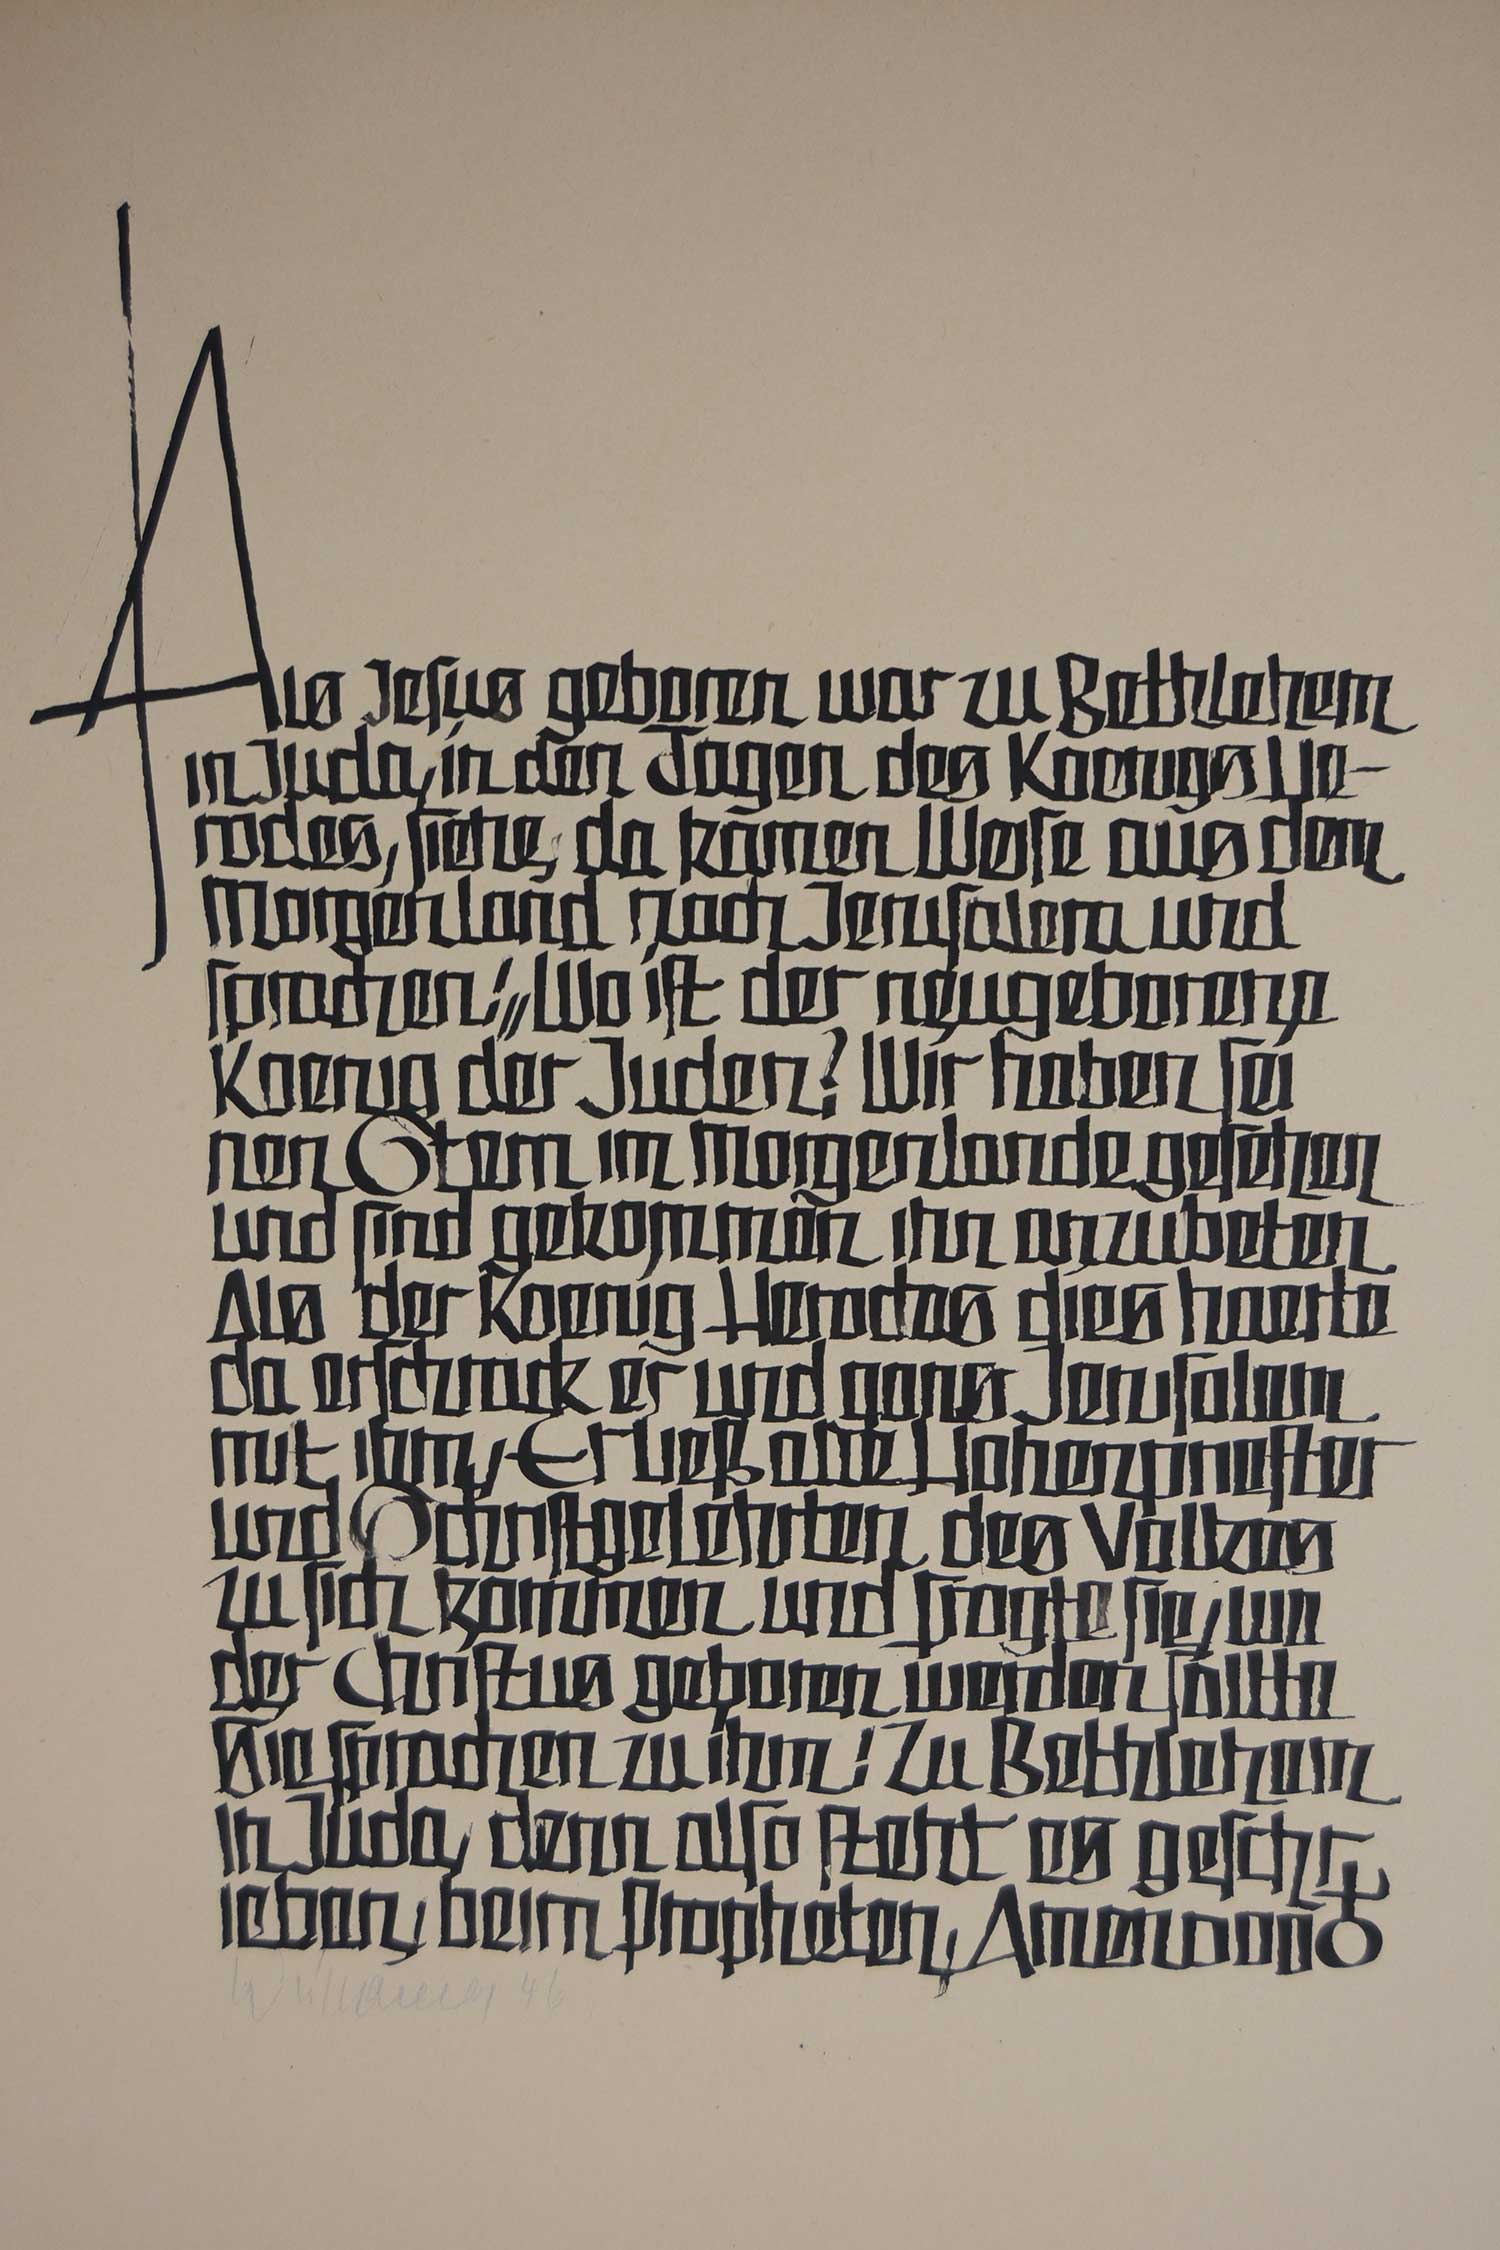 Als Jesus geboren war zu Bethlehem
in Juda, in den Tagen des Koenigs He-
rodes, siehe, da kamen Weise aus dem
Morgenland nach Jerusalem und
sprachen: „Wo ist der neugeborene
Koenig der Juden? Wir haben sei
nen Stern im Morgenlande gesehen
und sind gekommen ihn anzubeten
Als der Koenig Herodes dies hoerte
da erschrack er und ganz Jerusalem
mit ihm, Er ließ alle Hohenpriester
und Schriftgelehrten des Volkes
zu sich kommen und fragte sie, wo
der Christus geboren werden sollte
Sie sprachen zu ihm: Zu Bethlehem
in Juda, denn also steht es geschr
ieben, beim Propheten, Amen
46